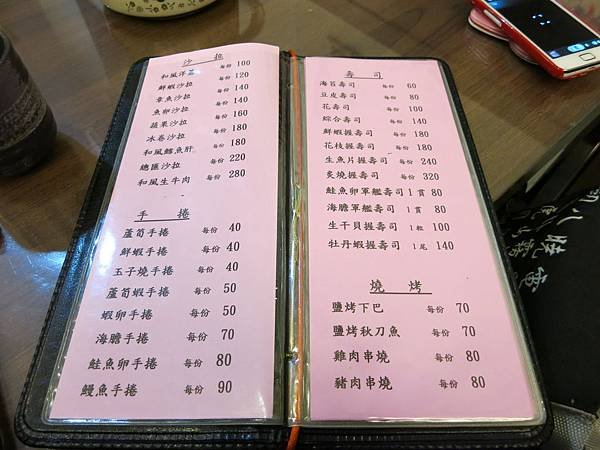 沙拉
和風洋茄 每份 100
鮮蝦沙拉 每份 120
章魚沙拉 每份 140
魚卵沙拉 每份 140
蔬果沙拉 每份 160
冰卷沙拉 每份 180
和風鱈魚肝 每份 180
總匯沙拉 每份 220
和風生牛肉 每份 280
手捲
蘆筍手捲 每份 40
鮮蝦手捲 每份 40
玉子燒手捲 每份 40
蘆筍蝦手捲 每份 50
蝦卵手捲 每份 50
海膽手捲 每份 70
鮭魚卵手捲 每份 80
鰻魚手捲 每份 90
壽司
海苔壽司 每份 60
豆皮壽司 每份 80
花壽司 每份 100
綜合壽司 每份 140
鮮蝦握壽司 每份 180
花枝握壽司 每份 180
生魚片握壽司 每份 240
炙燒握壽司 每份 320
鮭魚卵軍艦壽司 1貫 80
海膽軍艦壽司 1貫 80
生干貝握壽司 1粒 100
牡丹蝦握壽司 1尾 140
燒烤
鹽烤下巴 每份 70
鹽烤秋刀魚 每份 70
雞肉串燒 每份 80
豬肉串燒 每份 80